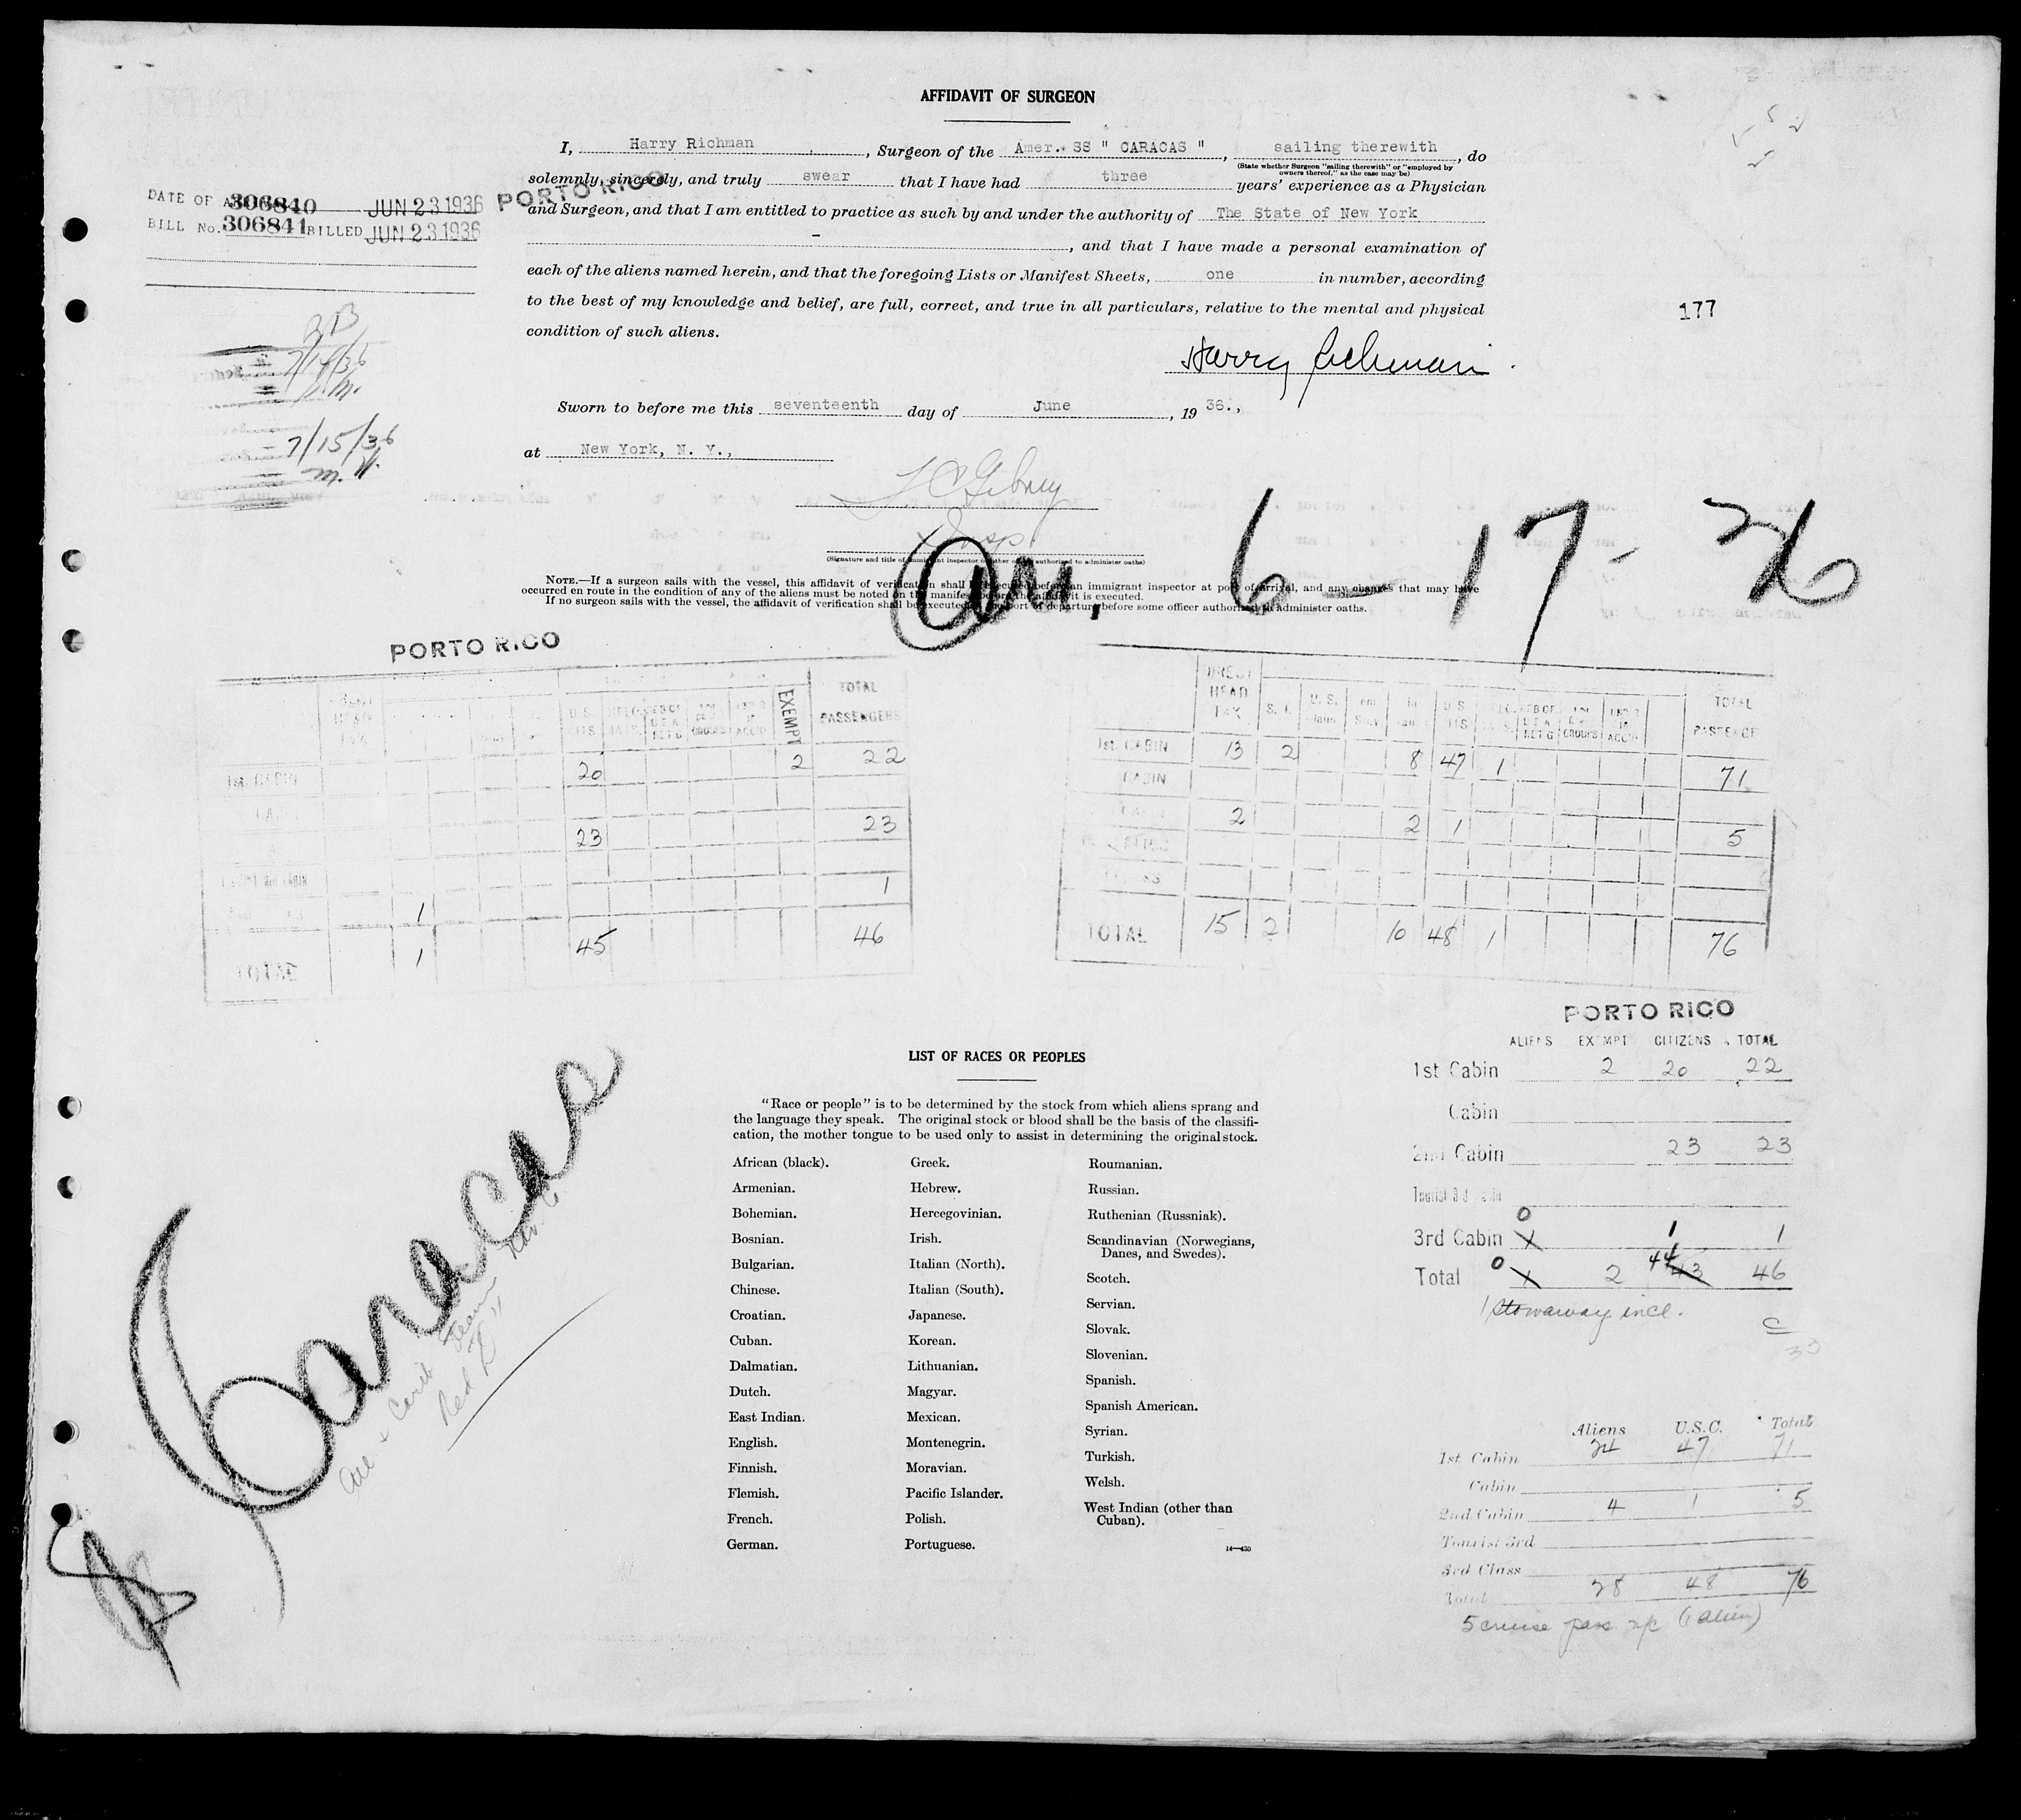 AFFIDAVIT OF SURGEON
I, Harry Richman, Surgeon of the Amer. SS " CARACAS ", sailing therewith, do
(State whether Surgeon "sailing therewith" or "employed by owners thereof," as the case may be)
solemnly, sincerely, and truly swear that I have had three years' experience as a Physician
and Surgeon, and that I am entitled to practice as such by and under the authority of The State of New York
, and that I have made a personal examination of
each of the aliens named herein, and that the foregoing Lists or Manifest Sheets, one in number, according
to the best of my knowledge and belief, are full, correct, and true in all particulars, relative to the mental and physical
condition of such aliens.
PORTO RICO
DATE OF 306840 JUN 23 1936
BILL No. 306841 BILLED JUN 23 1936
177
7/14/36
7/15/36
Harry Richman
Sworn to before me this seventeenth day of June, 1936.,
at New York, N. Y.,
Insp
(Signature and title of immigrant inspector or other officer authorized to administer oaths)
Arr. 6-17-36
NOTE.—If a surgeon sails with the vessel, this affidavit of verification shall be executed before an immigrant inspector at port of arrival, and any changes that may have
occurred en route in the condition of any of the aliens must be noted on the manifest before the affidavit is executed.
If no surgeon sails with the vessel, the affidavit of verification shall be executed at the port of departure, before some officer authorized to administer oaths.
PORTO RICO
EXEMPT TOTAL PASSENGERS
1st. CABIN 20 2 22
23 23
1 1
TOTAL 1 45 46
DIRECT HEAD TAX TOTAL
1st. CABIN 13 2 8 47 1 71
CABIN
2 2 1 5
TOTAL 15 2 10 48 1 76
PORTO RICO
ALIENS EXEMPT CITIZENS TOTAL
1st Cabin 2 20 22
Cabin
2nd Cabin 23 23
3rd Cabin 0 1 1
Total 0 2 44 43 46
1 stowaway incl.
Caracas
Red "D"
LIST OF RACES OR PEOPLES
"Race or people" is to be determined by the stock from which aliens sprang and
the language they speak. The original stock or blood shall be the basis of the classifi-
cation, the mother tongue to be used only to assist in determining the original stock.
African (black).
Armenian.
Bohemian.
Bosnian.
Bulgarian.
Chinese.
Croatian.
Cuban.
Dalmatian.
Dutch.
East Indian.
English.
Finnish.
Flemish.
French.
German.
Greek.
Hebrew.
Hercegovinian.
Irish.
Italian (North).
Italian (South).
Japanese.
Korean.
Lithuanian.
Magyar.
Mexican.
Montenegrin.
Moravian.
Pacific Islander.
Polish.
Portuguese.
Roumanian.
Russian.
Ruthenian (Russniak).
Scandinavian (Norwegians,
Danes, and Swedes).
Scotch.
Servian.
Slovak.
Slovenian.
Spanish.
Spanish American.
Syrian.
Turkish.
Welsh.
West Indian (other than
Cuban).
14—430
Aliens U.S.C. Total
1st Cabin 24 47 71
Cabin
2nd Cabin 4 1 5
Tourist 3rd
3rd Class
Total 28 48 76
5 cruise pass (1 alien)